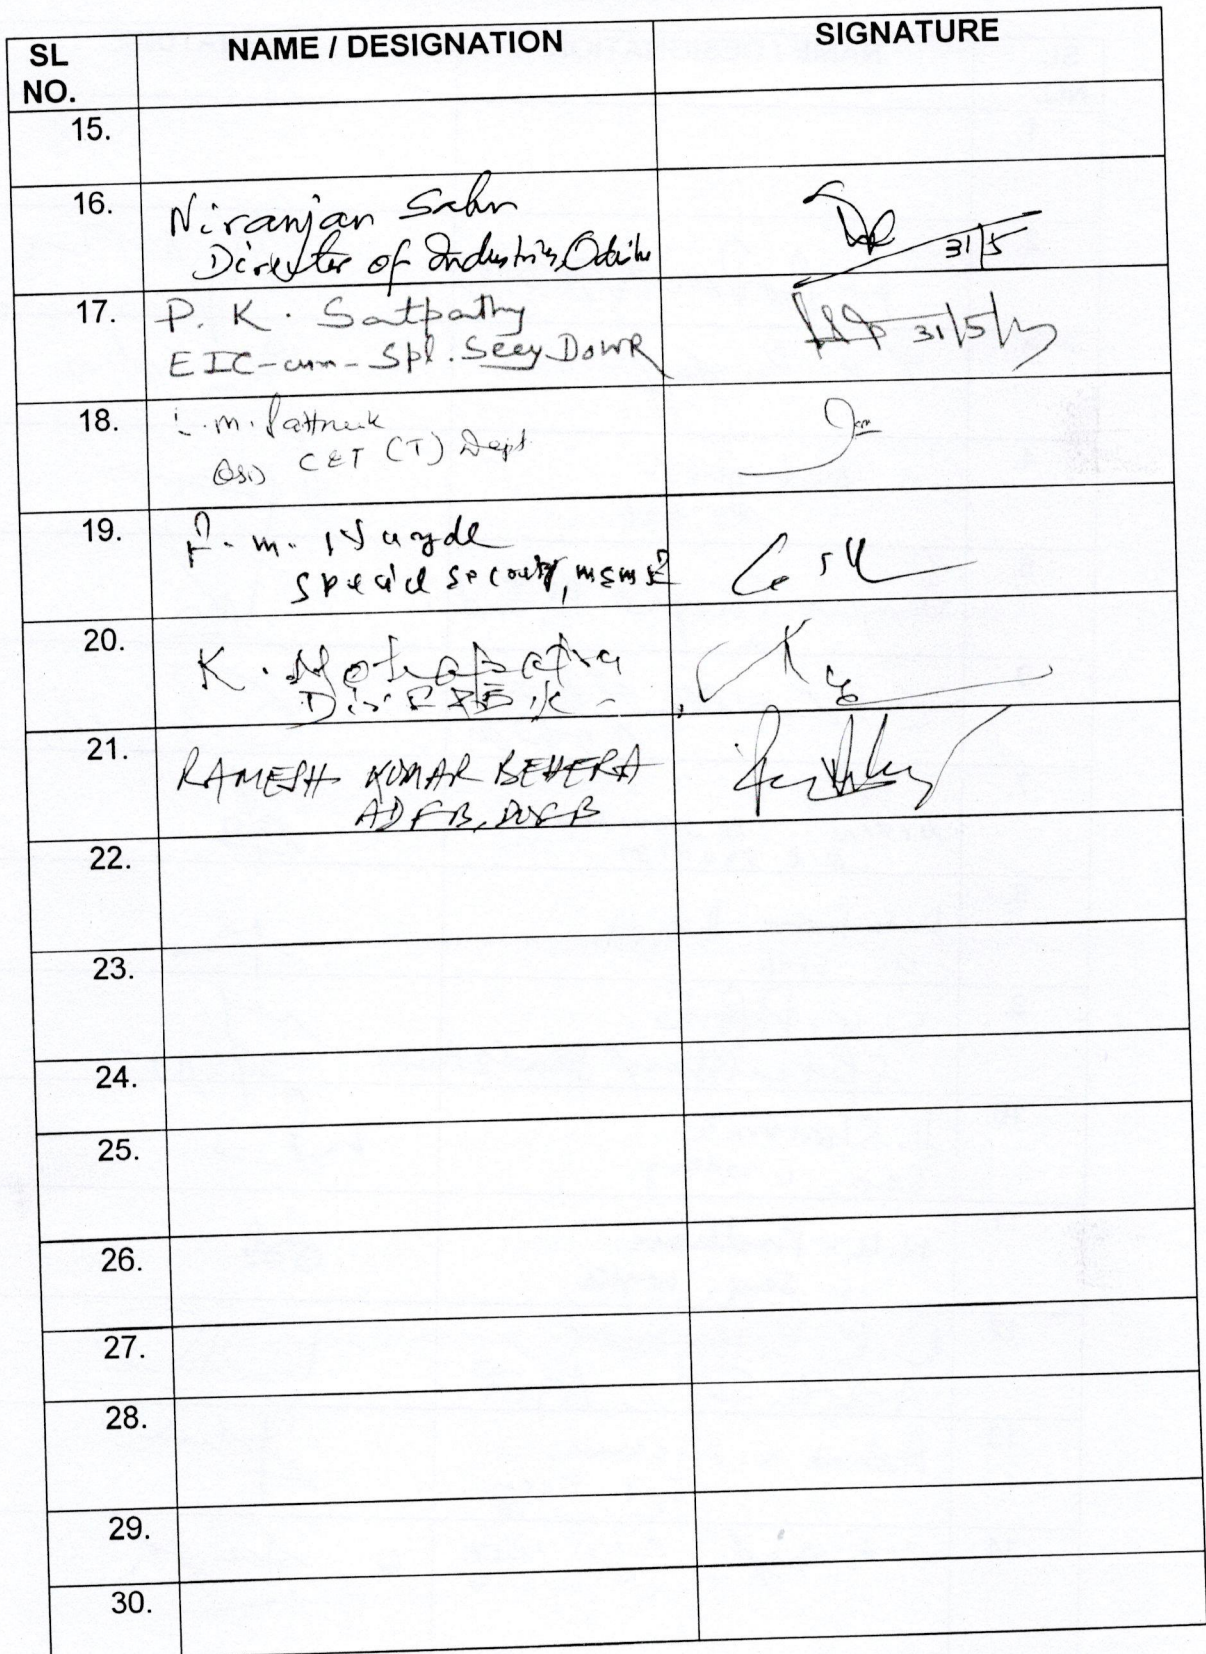 SL NO.
NAME / DESIGNATION
SIGNATURE
15.
16.
Niranjan Sahu
Director of Industries, Odisha
31/5
17.
P. K. Satpathy
EIC-cum-Spl. Secy DOWR
31/5/
18.
m. Pattnaik
OSD CET (T) Dept.
19.
m.
special secretary, msme
20.
K. Mohapatra
21.
RAMESH KUMAR BEHERA
ADFB, DOFB
22.
23.
24.
25.
26.
27.
28.
29.
30.